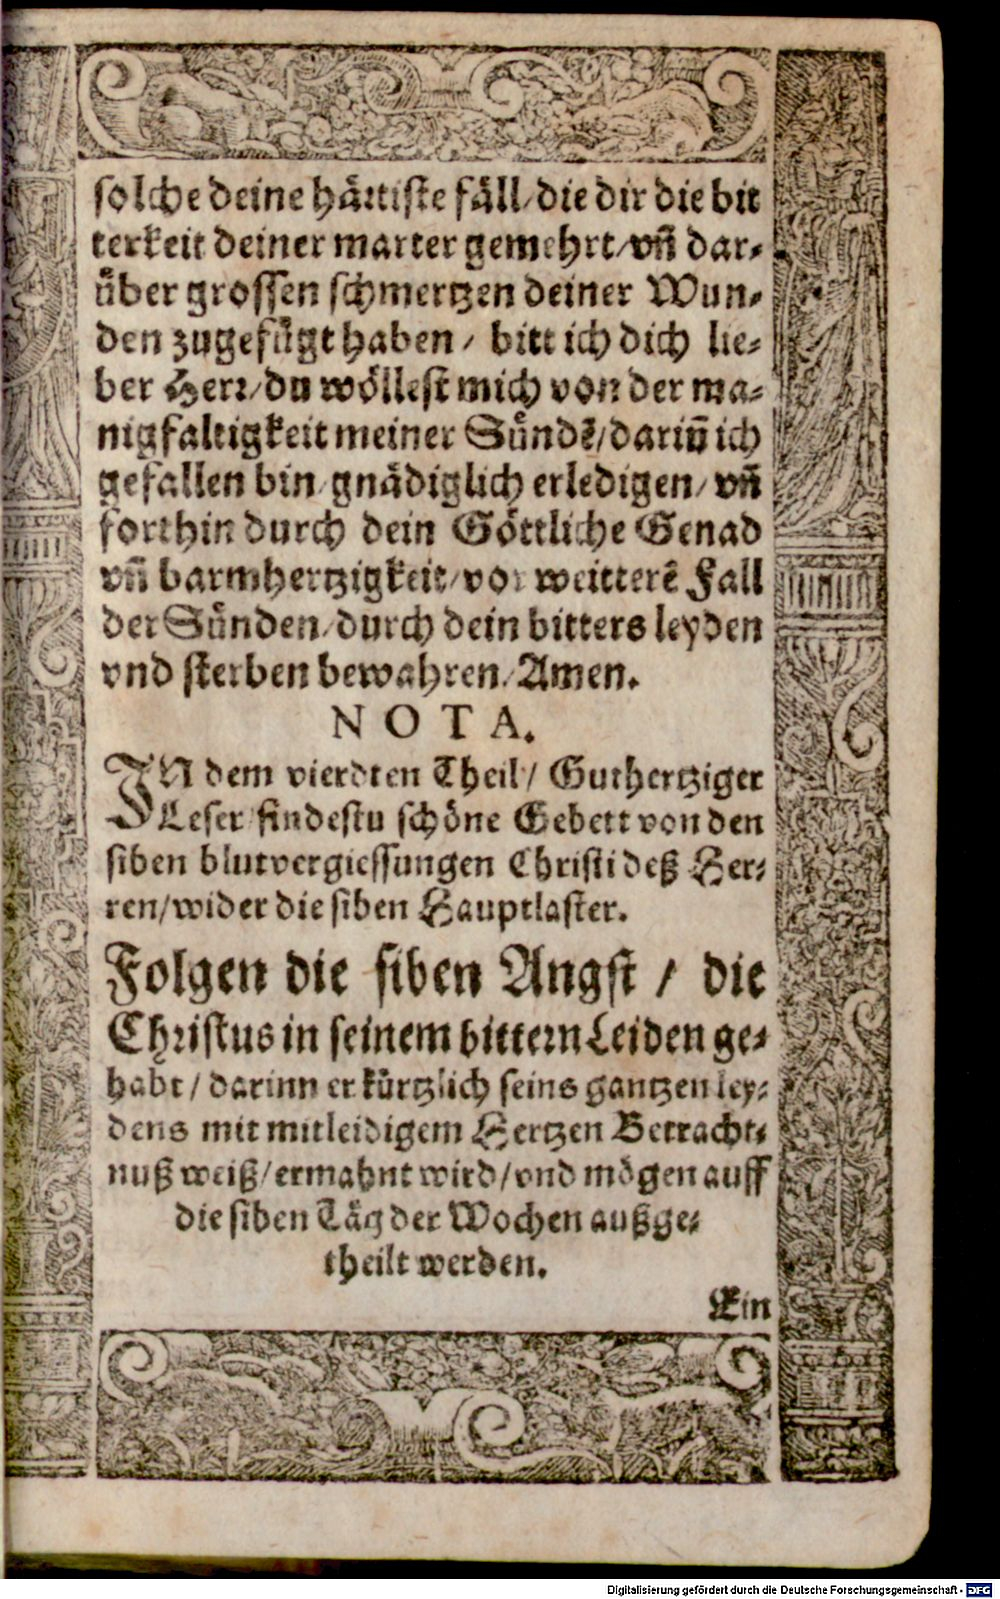 solche deine härtiste fäll/die dir die bit
terkeit deiner marter gemehrt/vñ dar-
über grossen schmertzen deiner Wun-
den zugefügt haben/ bitt ich dich lie-
ber Herr/du wöllest mich von der ma-
nigfaltigkeit meiner Sündẽ/dariñ ich
gefallen bin/gnädiglich erledigen/vñ
forthin durch dein Göttliche Genad
vñ barmhertzigkeit/vor weitterẽ Fall
der Sünden/durch dein bitters leyden
vnd sterben bewahren/Amen.
NOTA.
IN dem vierdten Theil/ Guthertziger
Leser findestu schöne Gebett von den
siben blutvergiessungen Christi deß Her-
ren/wider die siben Hauptlaster.
Folgen die siben Angst / die
Christus in seinem bittern Leiden ge-
habt/darinn er kürtzlich seins gantzen ley-
dens mit mitleidigem Hertzen Betracht-
nuß weiß/ermahnt wird/vnd mögen auff
die siben Täg der Wochen außge-
theilt werden.
Ein
Digitalisierung gefördert durch die Deutsche Forschungsgemeinschaft - DFG